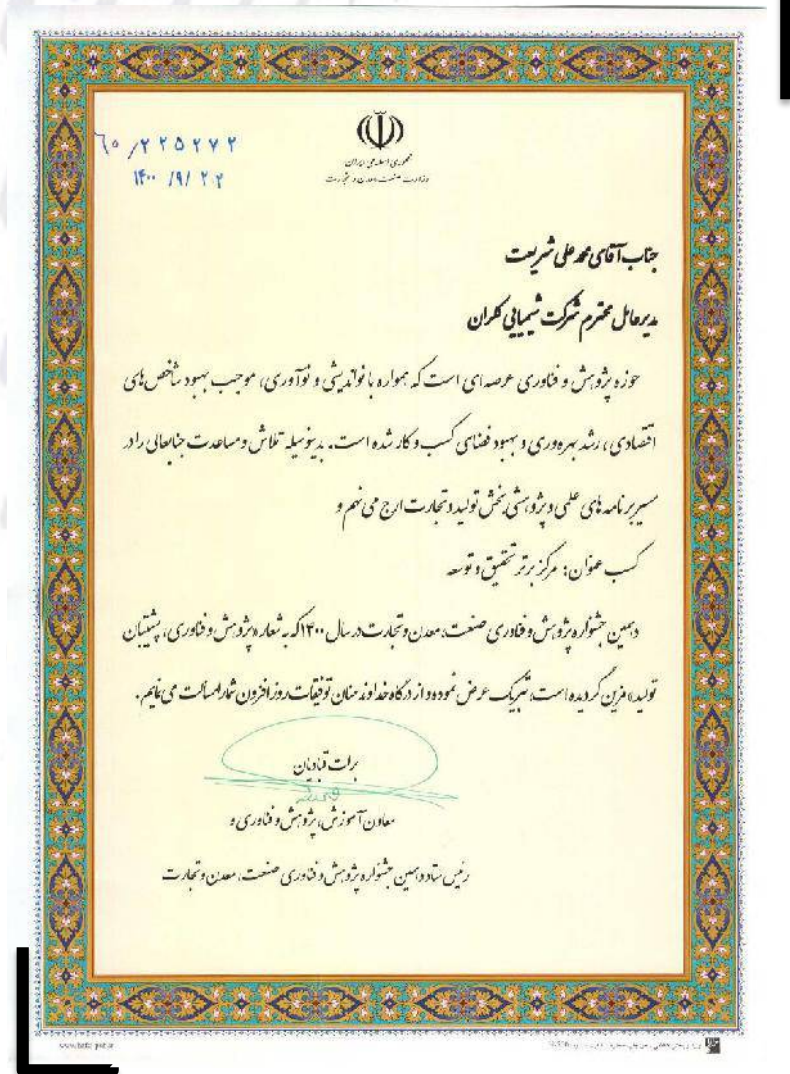 ۶۰/۲۲۵۲۷۲
۱۴۰۰/۹/۲۲
جمهوری اسلامی ایران
وزارت صنعت، معدن و تجارت
جناب آقای محمد علی شریعت
مدیرعامل محترم شرکت شیمیایی کلران
حوزه پژوهش و فناوری عرصه‌ای است که همواره با نواندیشی و نوآوری، موجب بهبود شاخص‌های
اقتصادی، رشد بهره‌وری و بهبود فضای کسب و کار شده است. بدینوسیله تلاش و مساعدت جنابعالی را در
مسیر برنامه‌های علمی و پژوهشی بخش تولید و تجارت ارج می‌نهم و
کسب عنوان: مرکز برتر تحقیق و توسعه
دهمین جشنواره پژوهش و فناوری صنعت، معدن و تجارت در سال ۱۴۰۰ که به شعار «پژوهش و فناوری، پشتیبان
تولید» مزین گردیده است، تبریک عرض نموده و از درگاه خداوند منان توفیقات روزافزون شما را مسألت می‌نمایم.
برات قبادیان
معاون آموزش، پژوهش و فناوری و
رئیس ستاد دهمین جشنواره پژوهش و فناوری صنعت، معدن و تجارت